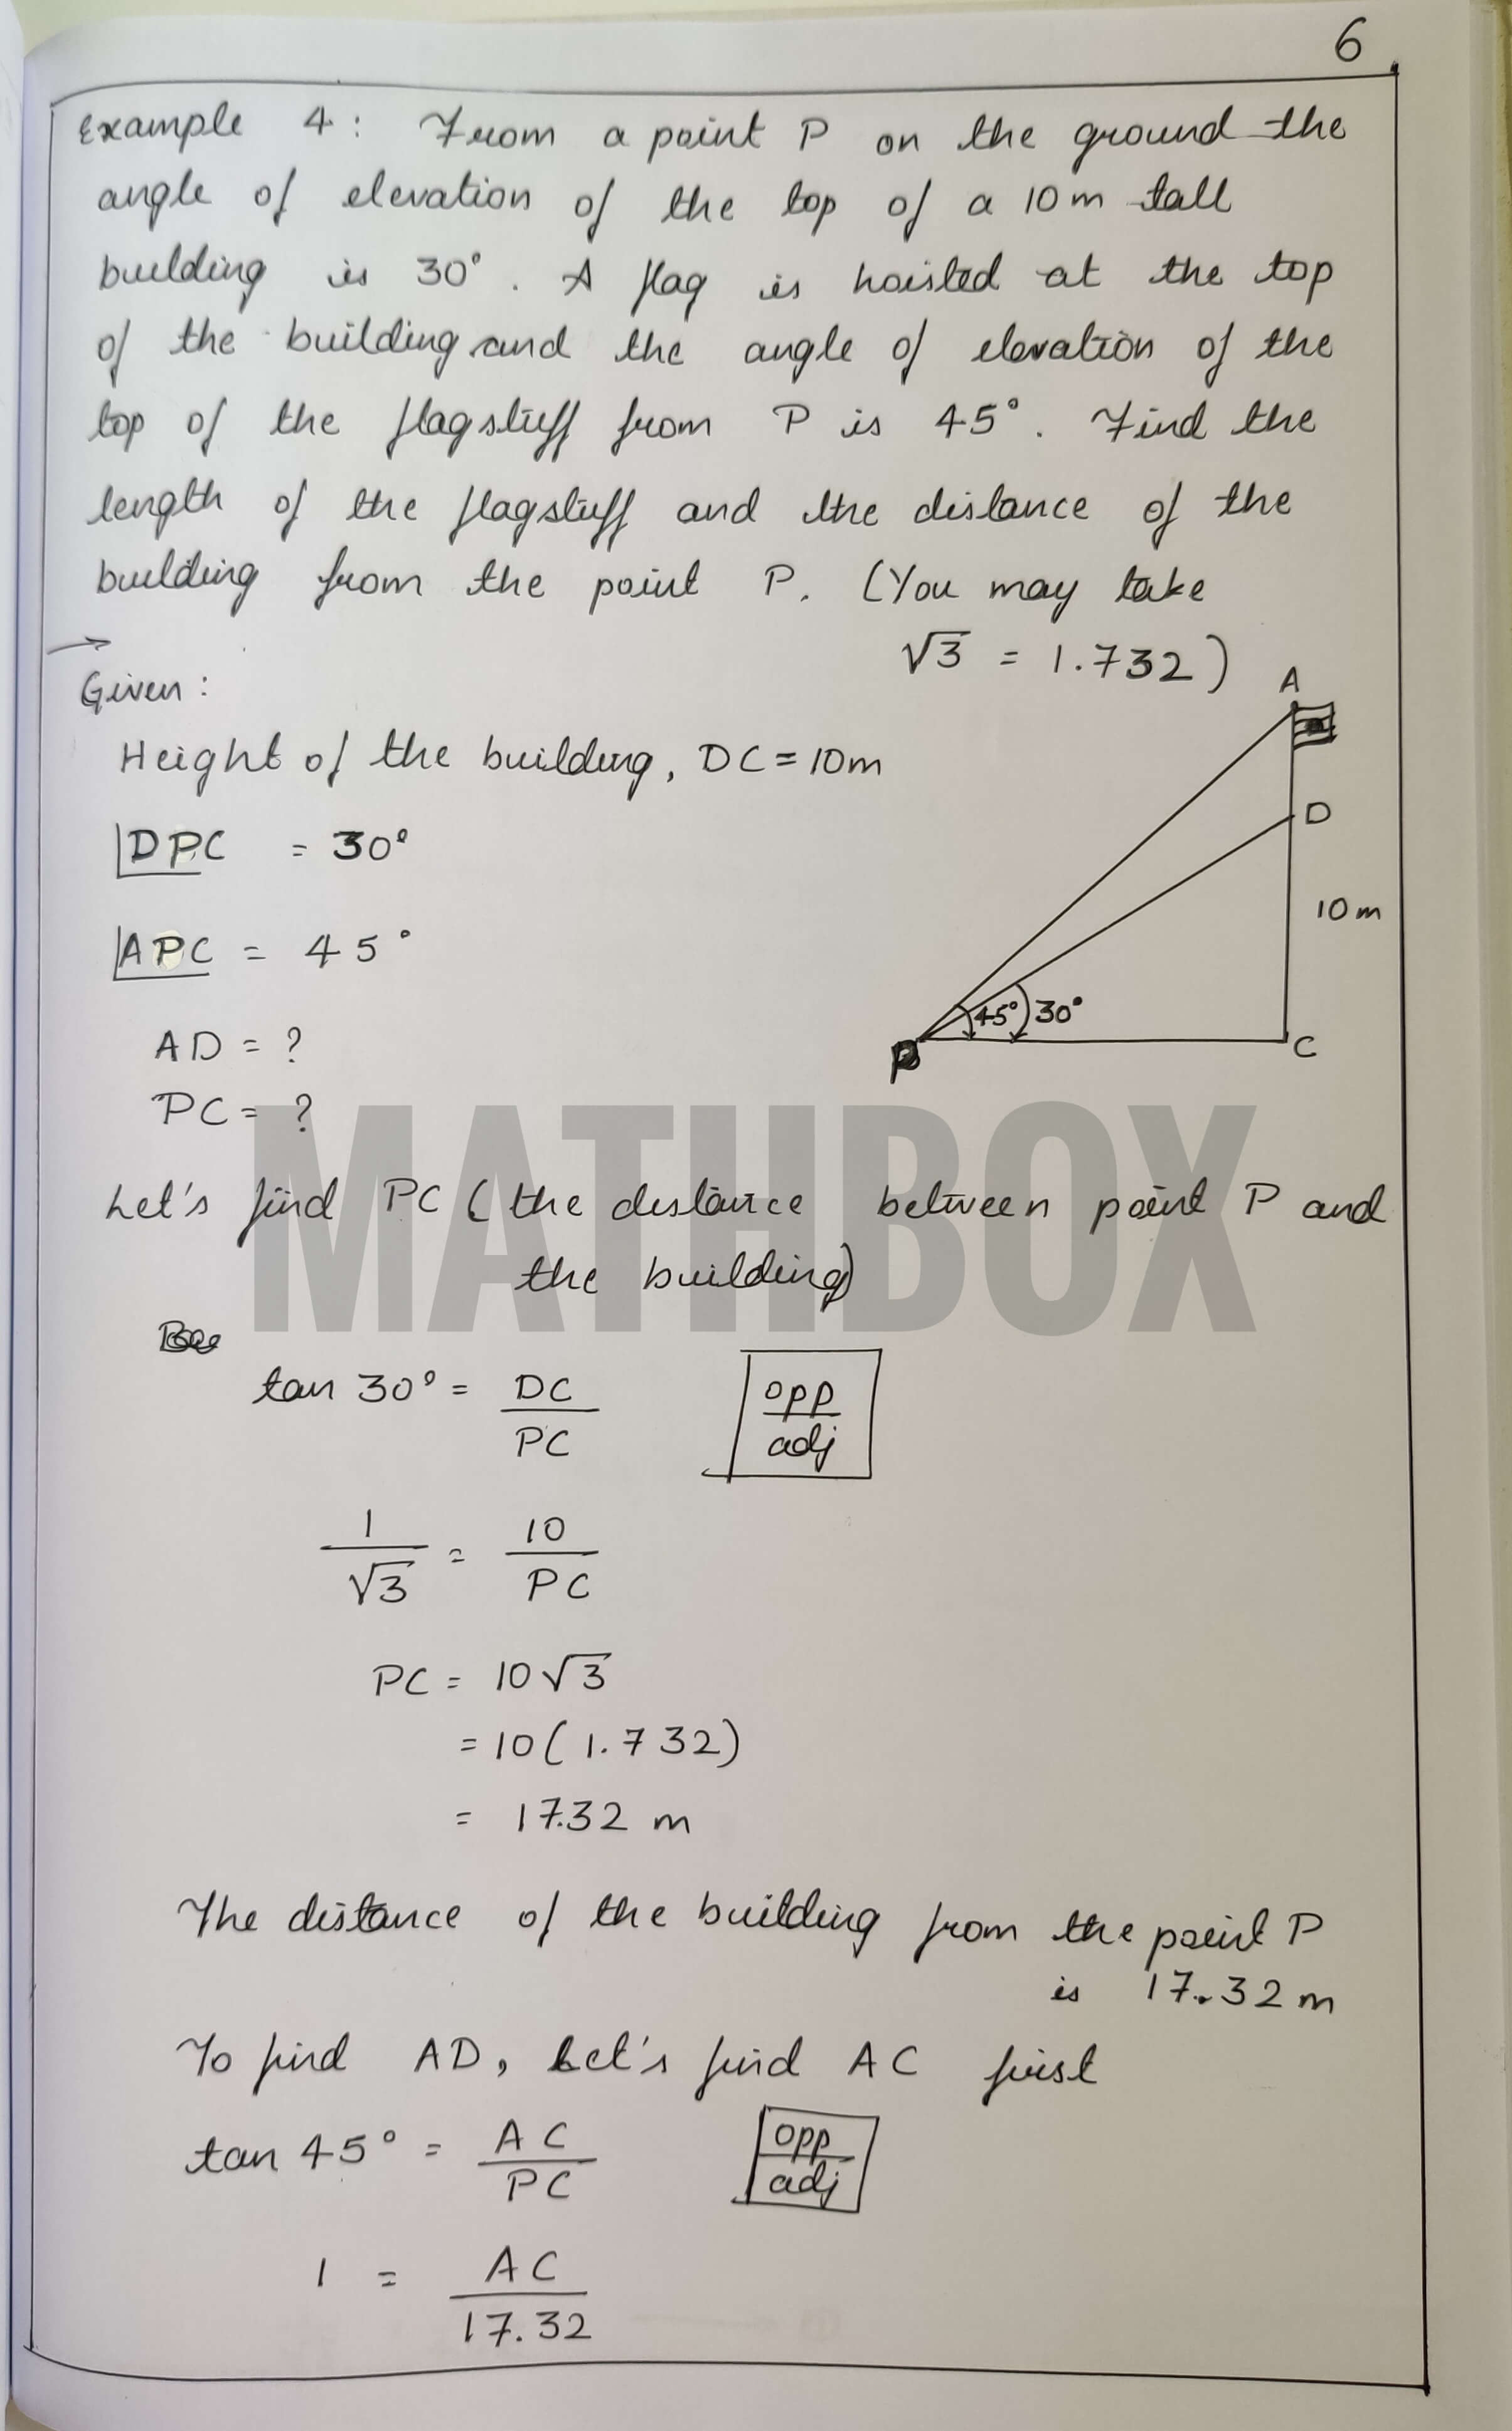 6
Example 4: From a point P on the ground the
angle of elevation of the top of a 10m tall
building is 30°. A flag is hoisted at the top
of the building and the angle of elevation of the
top of the flagstuff from P is 45°. Find the
length of the flagstuff and the distance of the
building from the point P. (You may take
√3 = 1.732)
Given:
Height of the building, DC = 10m
∠DPC = 30°
∠APC = 45°
AD = ?
PC = ?
A
D
10m
45° 30°
P
C
MATHBOX
Let's find PC (the distance between point P and
the building)
tan 30° = DC/PC opp/adj
1/√3 = 10/PC
PC = 10√3
= 10(1.732)
= 17.32 m
The distance of the building from the point P
is 17.32m
To find AD, Let's find AC first
tan 45° = AC/PC opp/adj
1 = AC/17.32